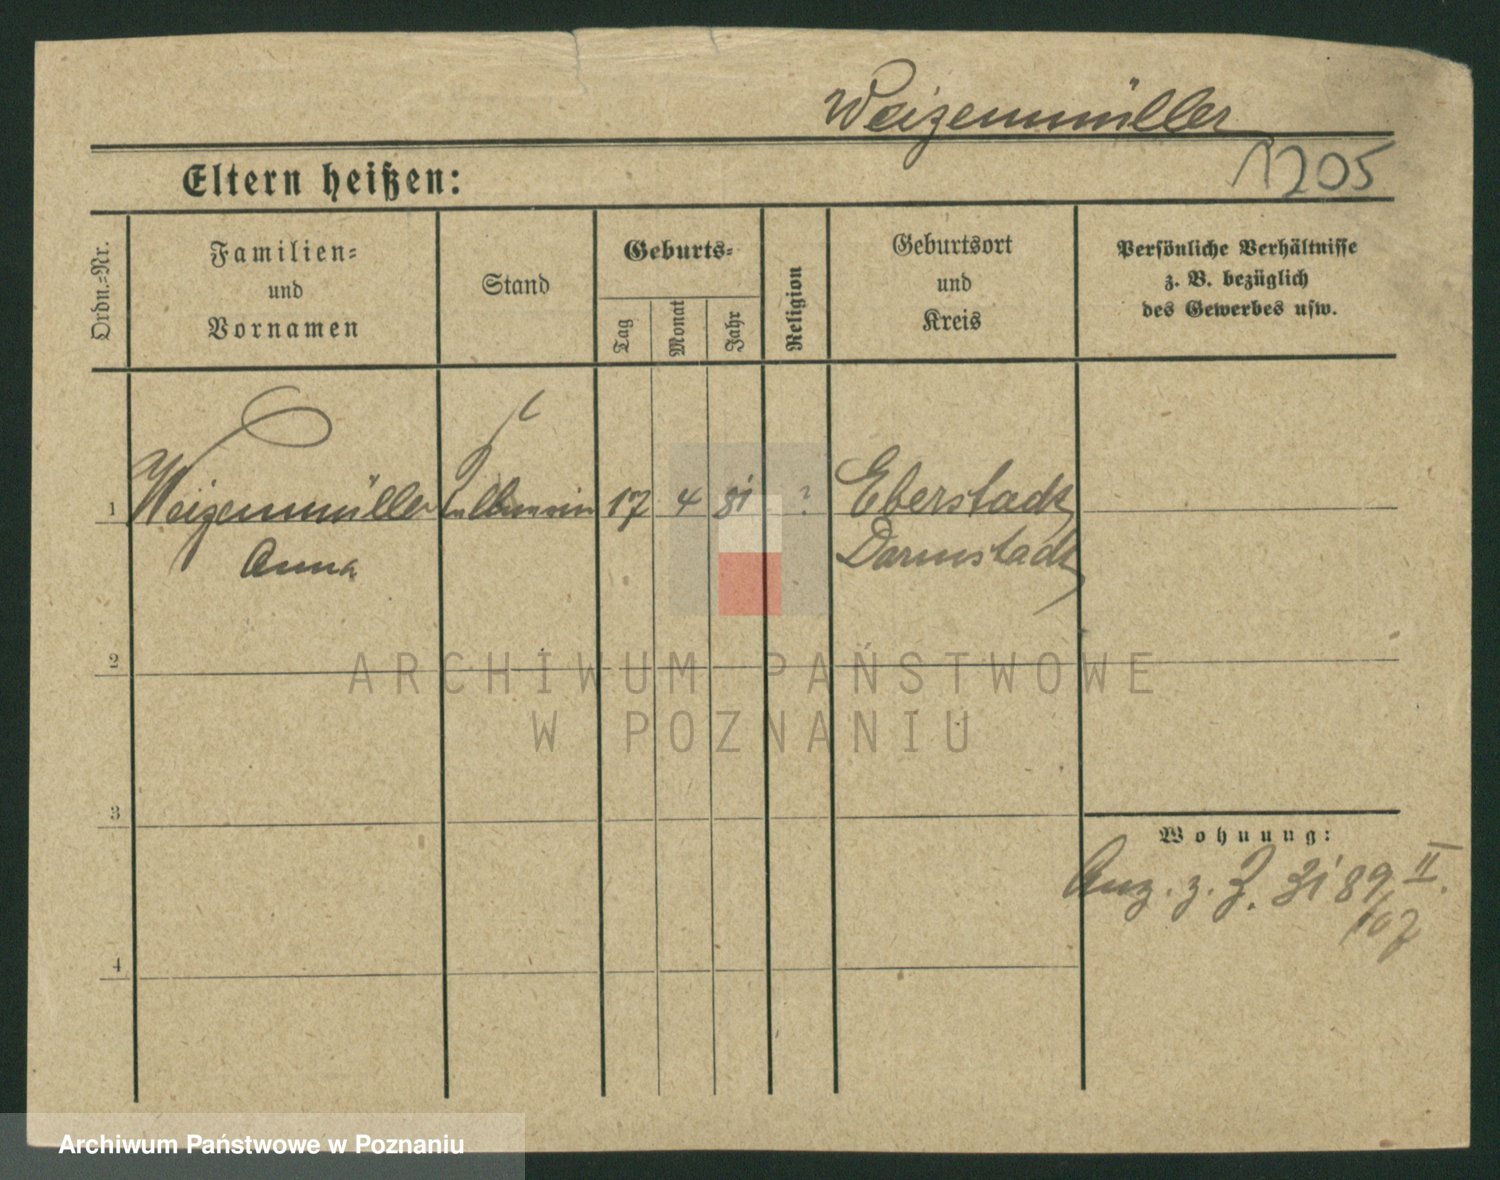 Weizenmüller
1205
Eltern heißen:
Ordn.-Nr.
Familien-
und
Vornamen
Stand
Geburts-
Tag
Monat
Jahr
Religion
Geburtsort
und
Kreis
Persönliche Verhältnisse
z. B. bezüglich
des Gewerbes usw.
1 Weizenmüller 17 4 81 ? Eberstadt
Anna Darmstadt
2
3
Wohnung:
Anz. z. Z. 31 89 II.
4
ARCHIWUM PAŃSTWOWE
W POZNANIU
Archiwum Państwowe w Poznaniu